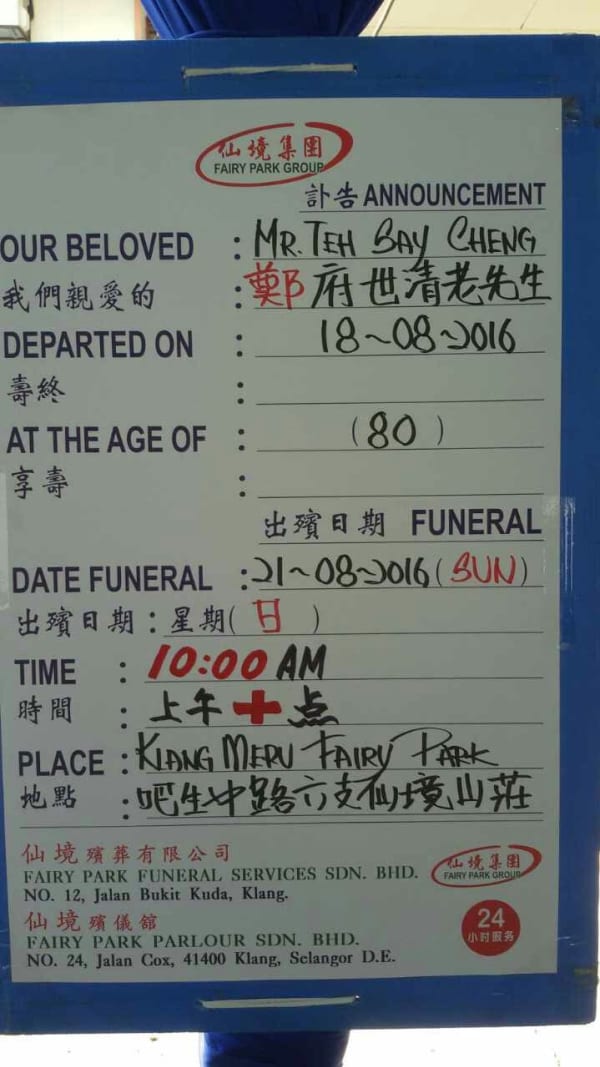 仙境集團
FAIRY PARK GROUP
訃告 ANNOUNCEMENT
OUR BELOVED : MR. TEH SAY CHENG
我們親愛的 : 鄭府世清老先生
DEPARTED ON : 18-08-2016
壽終 :
AT THE AGE OF : (80)
享壽 :
出殯日期 FUNERAL
DATE FUNERAL : 21-08-2016 (SUN)
出殯日期 : 星期( 日 )
TIME : 10:00 AM
時間 : 上午十点
PLACE : KLANG MERU FAIRY PARK
地點 : 吧生中路六支仙境山莊
仙境殯葬有限公司
FAIRY PARK FUNERAL SERVICES SDN. BHD.
NO. 12, Jalan Bukit Kuda, Klang.
仙境集團
FAIRY PARK GROUP
仙境殯儀館
FAIRY PARK PARLOUR SDN. BHD.
NO. 24, Jalan Cox, 41400 Klang, Selangor D.E.
24
小时服务